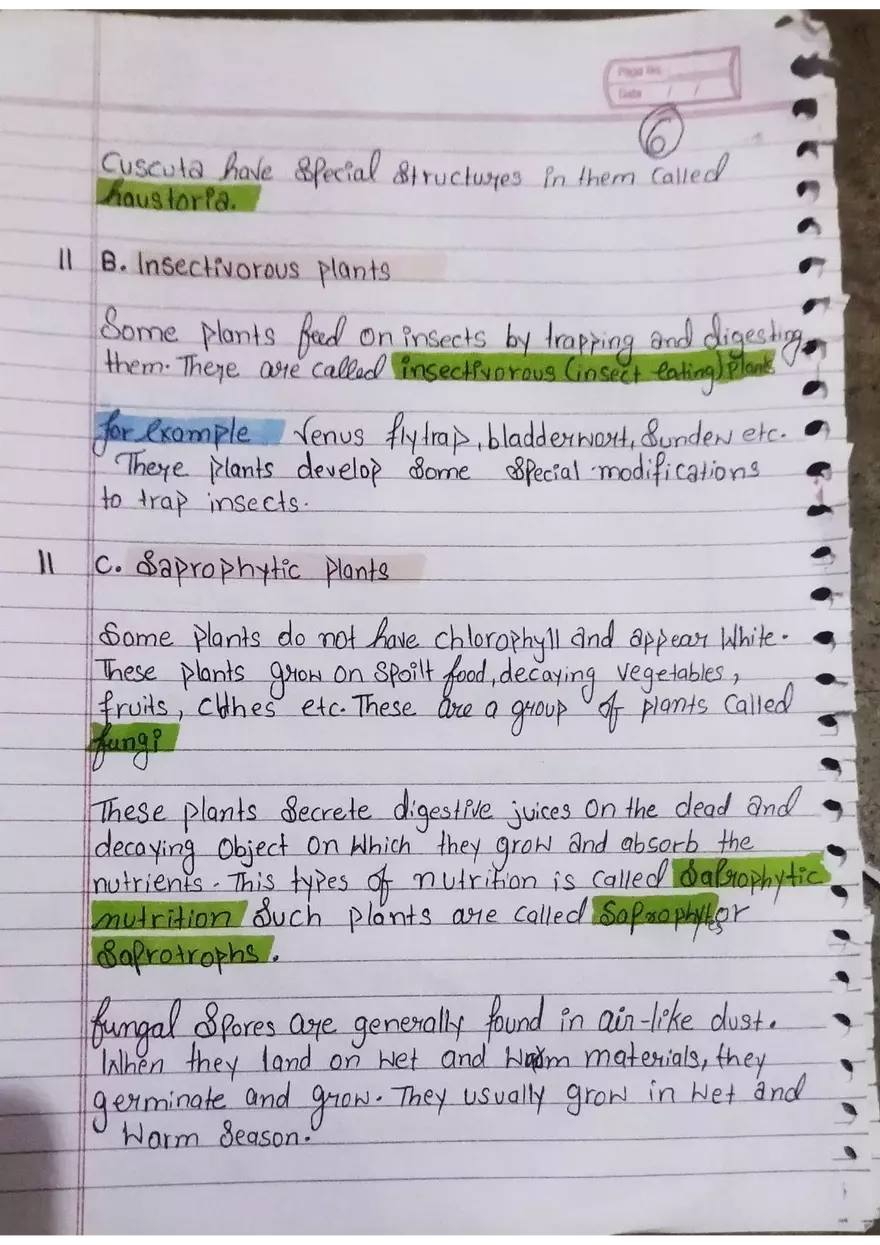 Page No.
Date / /
6
Cuscuta have special structures in them called
haustoria.
II B. Insectivorous plants
Some plants feed on insects by trapping and digesting
them. There are called insectivorous (insect eating) plants
for example Venus flytrap, bladderwort, Sundew etc.
There plants develop some special modifications
to trap insects.
II C. Saprophytic plants
Some plants do not have chlorophyll and appear white.
These plants grow on spoilt food, decaying vegetables,
fruits, etc. These are a group of plants called
fungi
These plants secrete digestive juices on the dead and
decaying object on which they grow and absorb the
nutrients. This types of nutrition is called Saprophytic
nutrition Such plants are called Saprophytes or
Saprotrophs.
fungal spores are generally found in air-like dust.
When they land on wet and warm materials, they
germinate and grow. They usually grow in wet and
warm season.